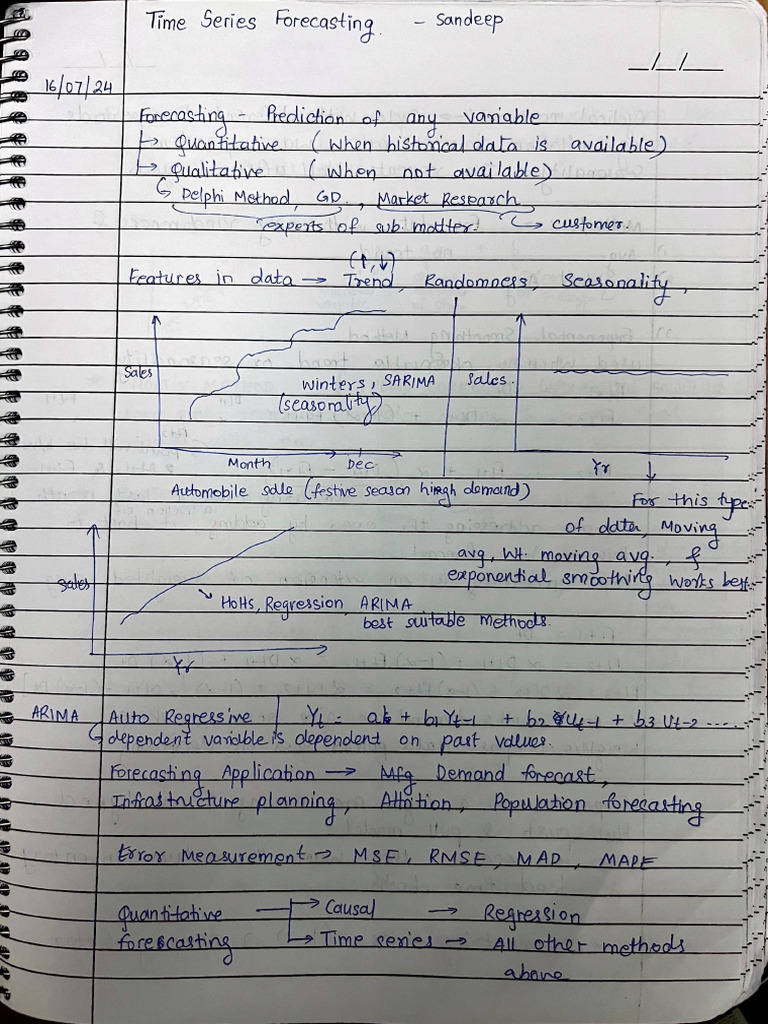 Time Series Forecasting. - Sandeep
_/_/__
16/07/24
Forecasting - Prediction of any variable
↳ Quantitative (when historical data is available)
↳ Qualitative (when not available)
↳ Delphi Method, GD., Market Research
experts of sub. matter. ↳ customer.
(↑,↓)
Features in data → Trend, Randomness, Seasonality,
Sales
winters, SARIMA
(seasonality)
Month Dec
Automobile sale (festive season hingh demand)
Sales.
Yr
For this type
of data, Moving
avg, Wt. moving avg., &
exponential smoothing works best.
Sales
HoHs, Regression, ARIMA
best suitable methods.
Yr
ARIMA Auto Regressive | Yt = + b1 Yt-1 + b2 Ut-1 + b3 Ut-2 ....
↳ dependent variable is dependent on past values.
Forecasting Application → Mfg Demand forecast,
Infrastructure planning, Attrition, Population forecasting
Error Measurement → MSE, RMSE, MAD, MAPE
Quantitative → Causal → Regression
forecasting → Time series → All other methods
above